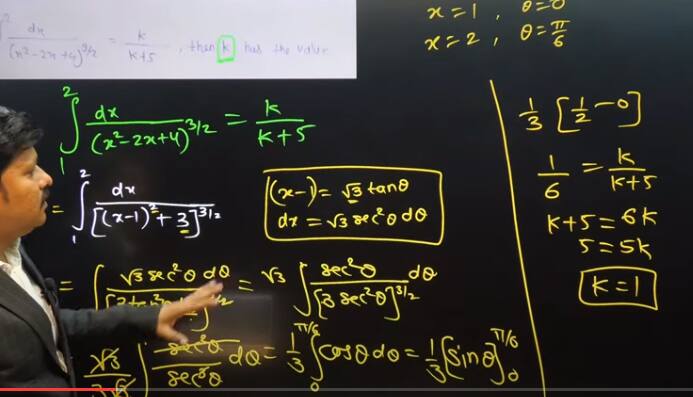 2
dx
(x²-2x+4)³/² = k/(k+5) , then k has the value
x=1 , θ=0
x=2 , θ=π/6
∫₁² dx/(x²-2x+4)^3/2 = k/(k+5)
= ∫₁² dx/[(x-1)²+3]^3/2
(x-1)=√3 tanθ
dx = √3 sec²θ dθ
= ∫ √3 sec²θ dθ
= √3 ∫ sec²θ/[3 sec²θ]^3/2 dθ
= √3 ∫ sec²θ/sec³θ dθ = 1/3 ∫₀^π/6 cosθ dθ = 1/3 [sinθ]₀^π/6
1/3 [1/2 - 0]
1/6 = k/(k+5)
k+5 = 6k
5 = 5k
k=1